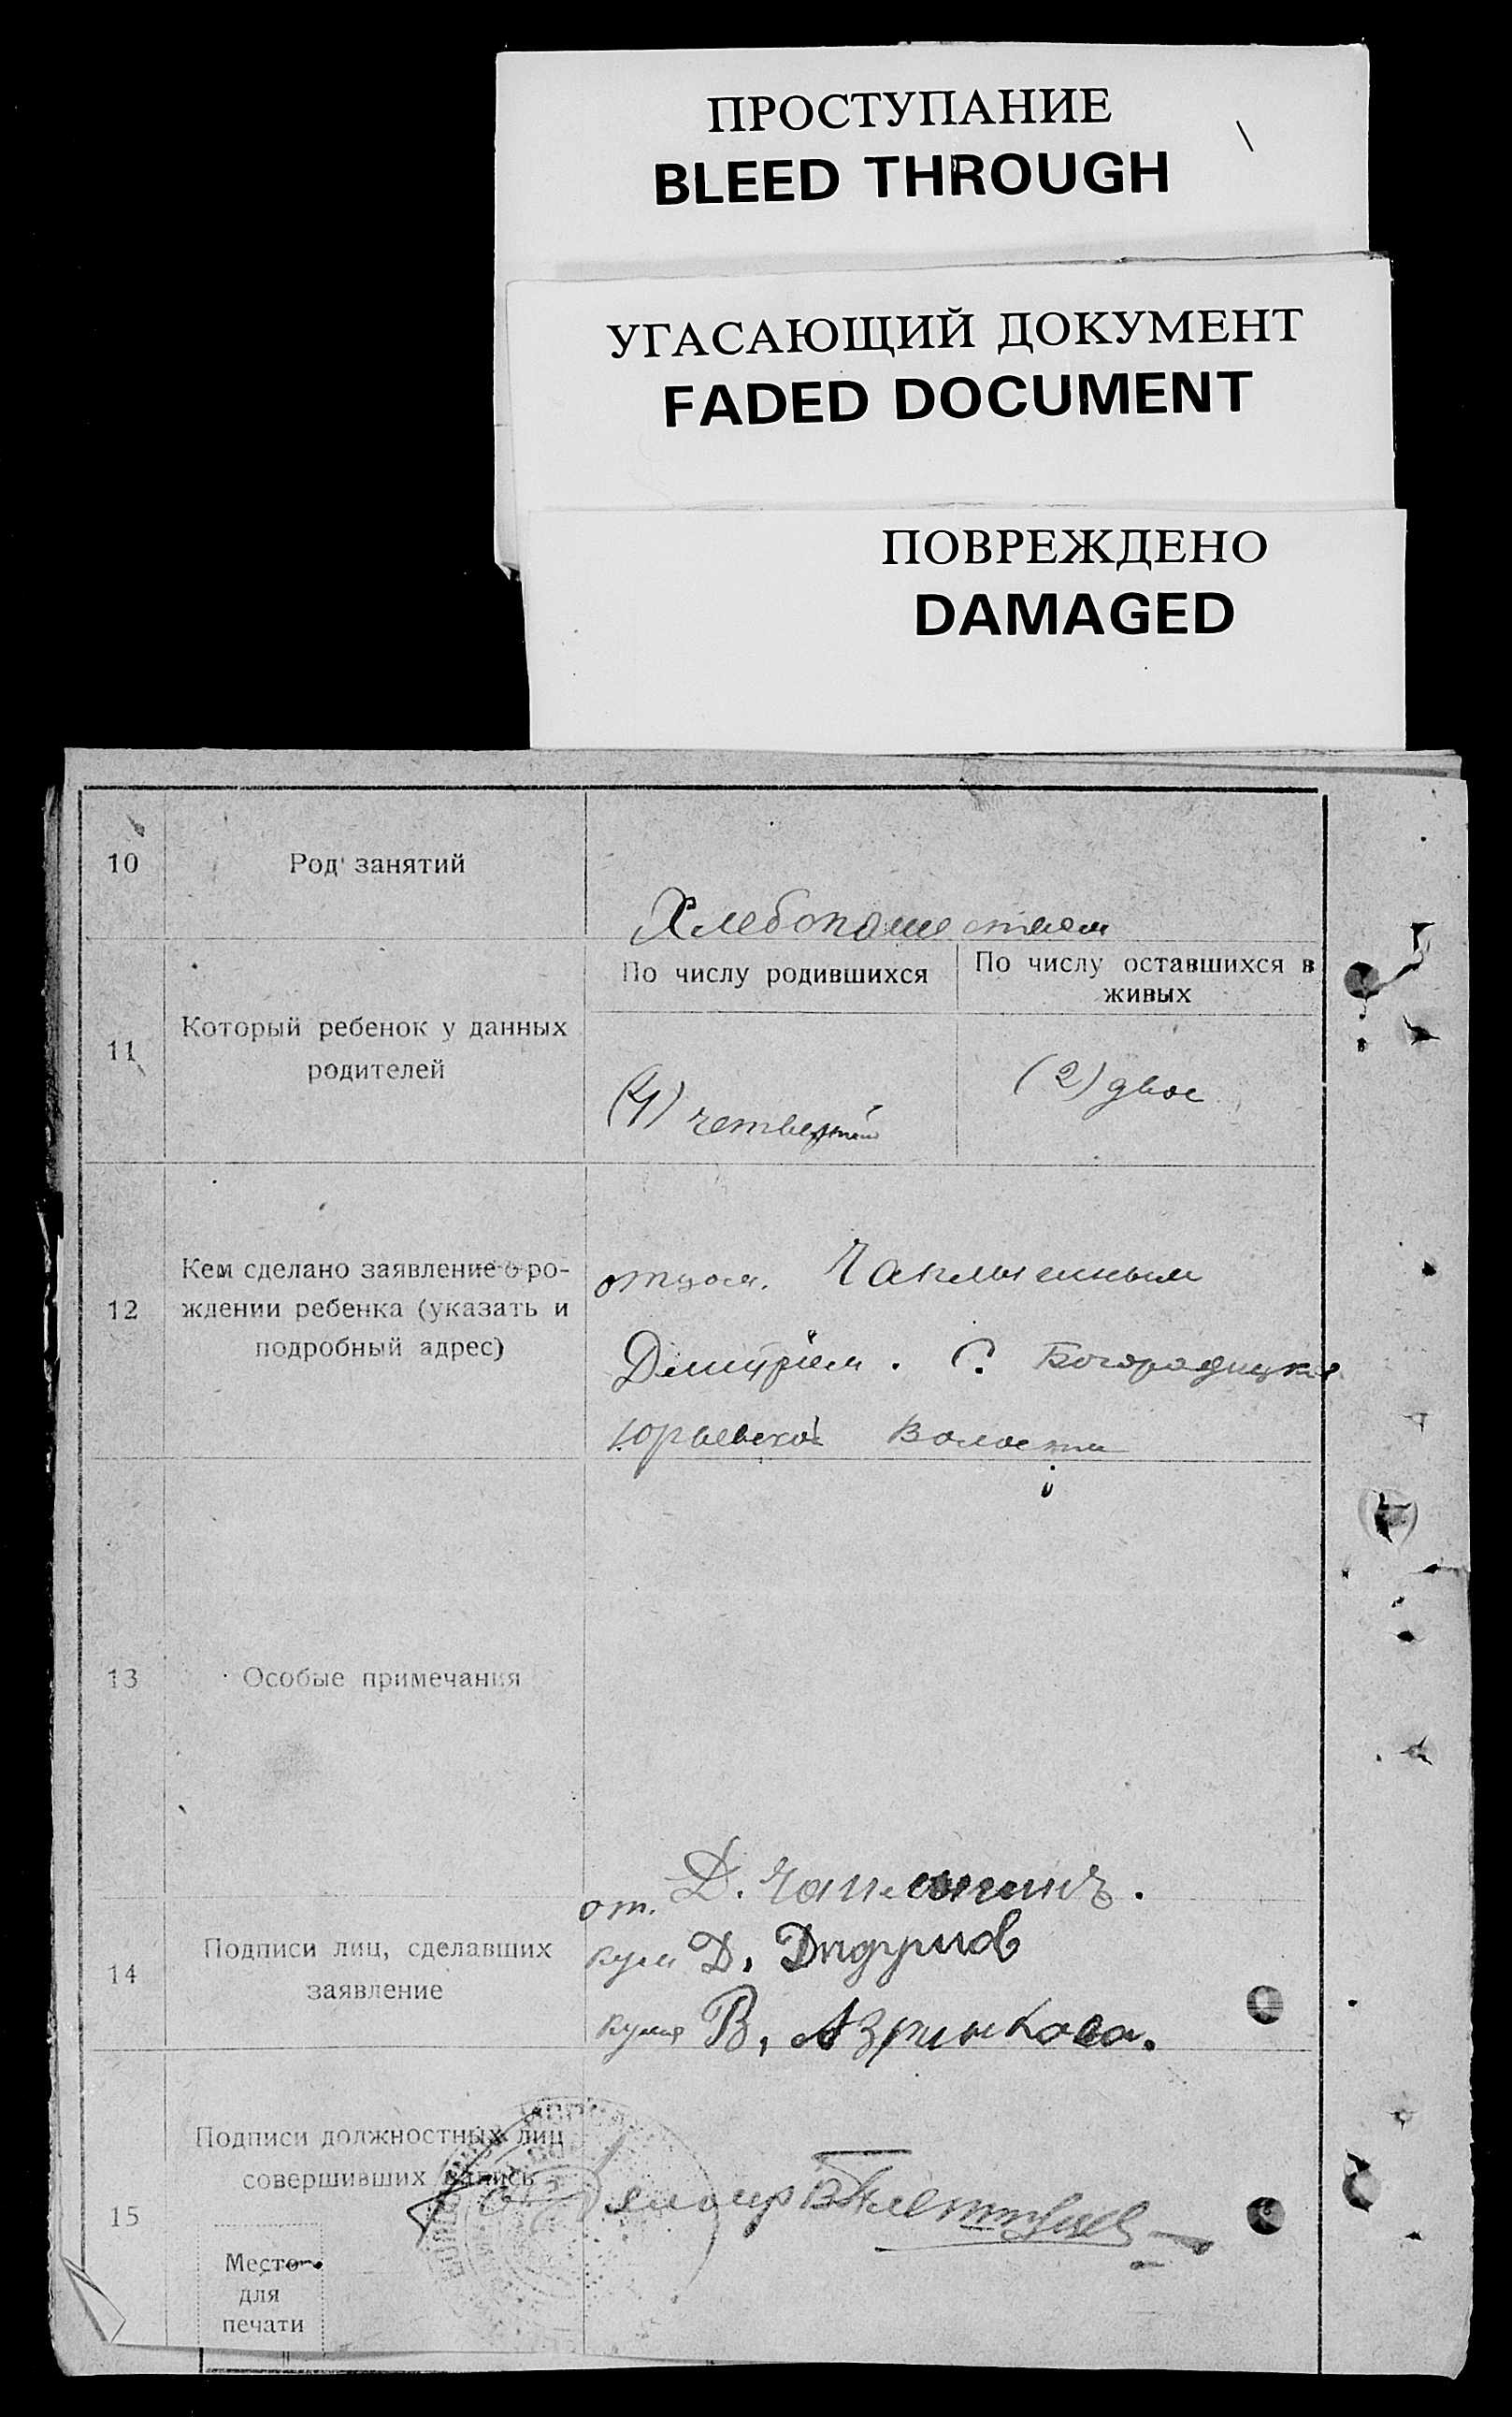 ПРОСТУПАНИЕ
BLEED THROUGH
УГАСАЮЩИЙ ДОКУМЕНТ
FADED DOCUMENT
ПОВРЕЖДЕНО
DAMAGED
10
Род занятий
11
Который ребенок у данных
родителей
По числу родившихся
По числу оставшихся в
живых
(4) четвертый
(2) двое
12
Кем сделано заявление о ро-
ждении ребенка (указать и
подробный адрес)
отцом.
Дмитрием. С. Богородицкое
Юрьевской Волости
13
Особые примечания
14
Подписи лиц, сделавших
заявление
от. Д.
кум Д.
кума В.
15
Подписи должностных лиц
совершивших запись
Место
для
печати